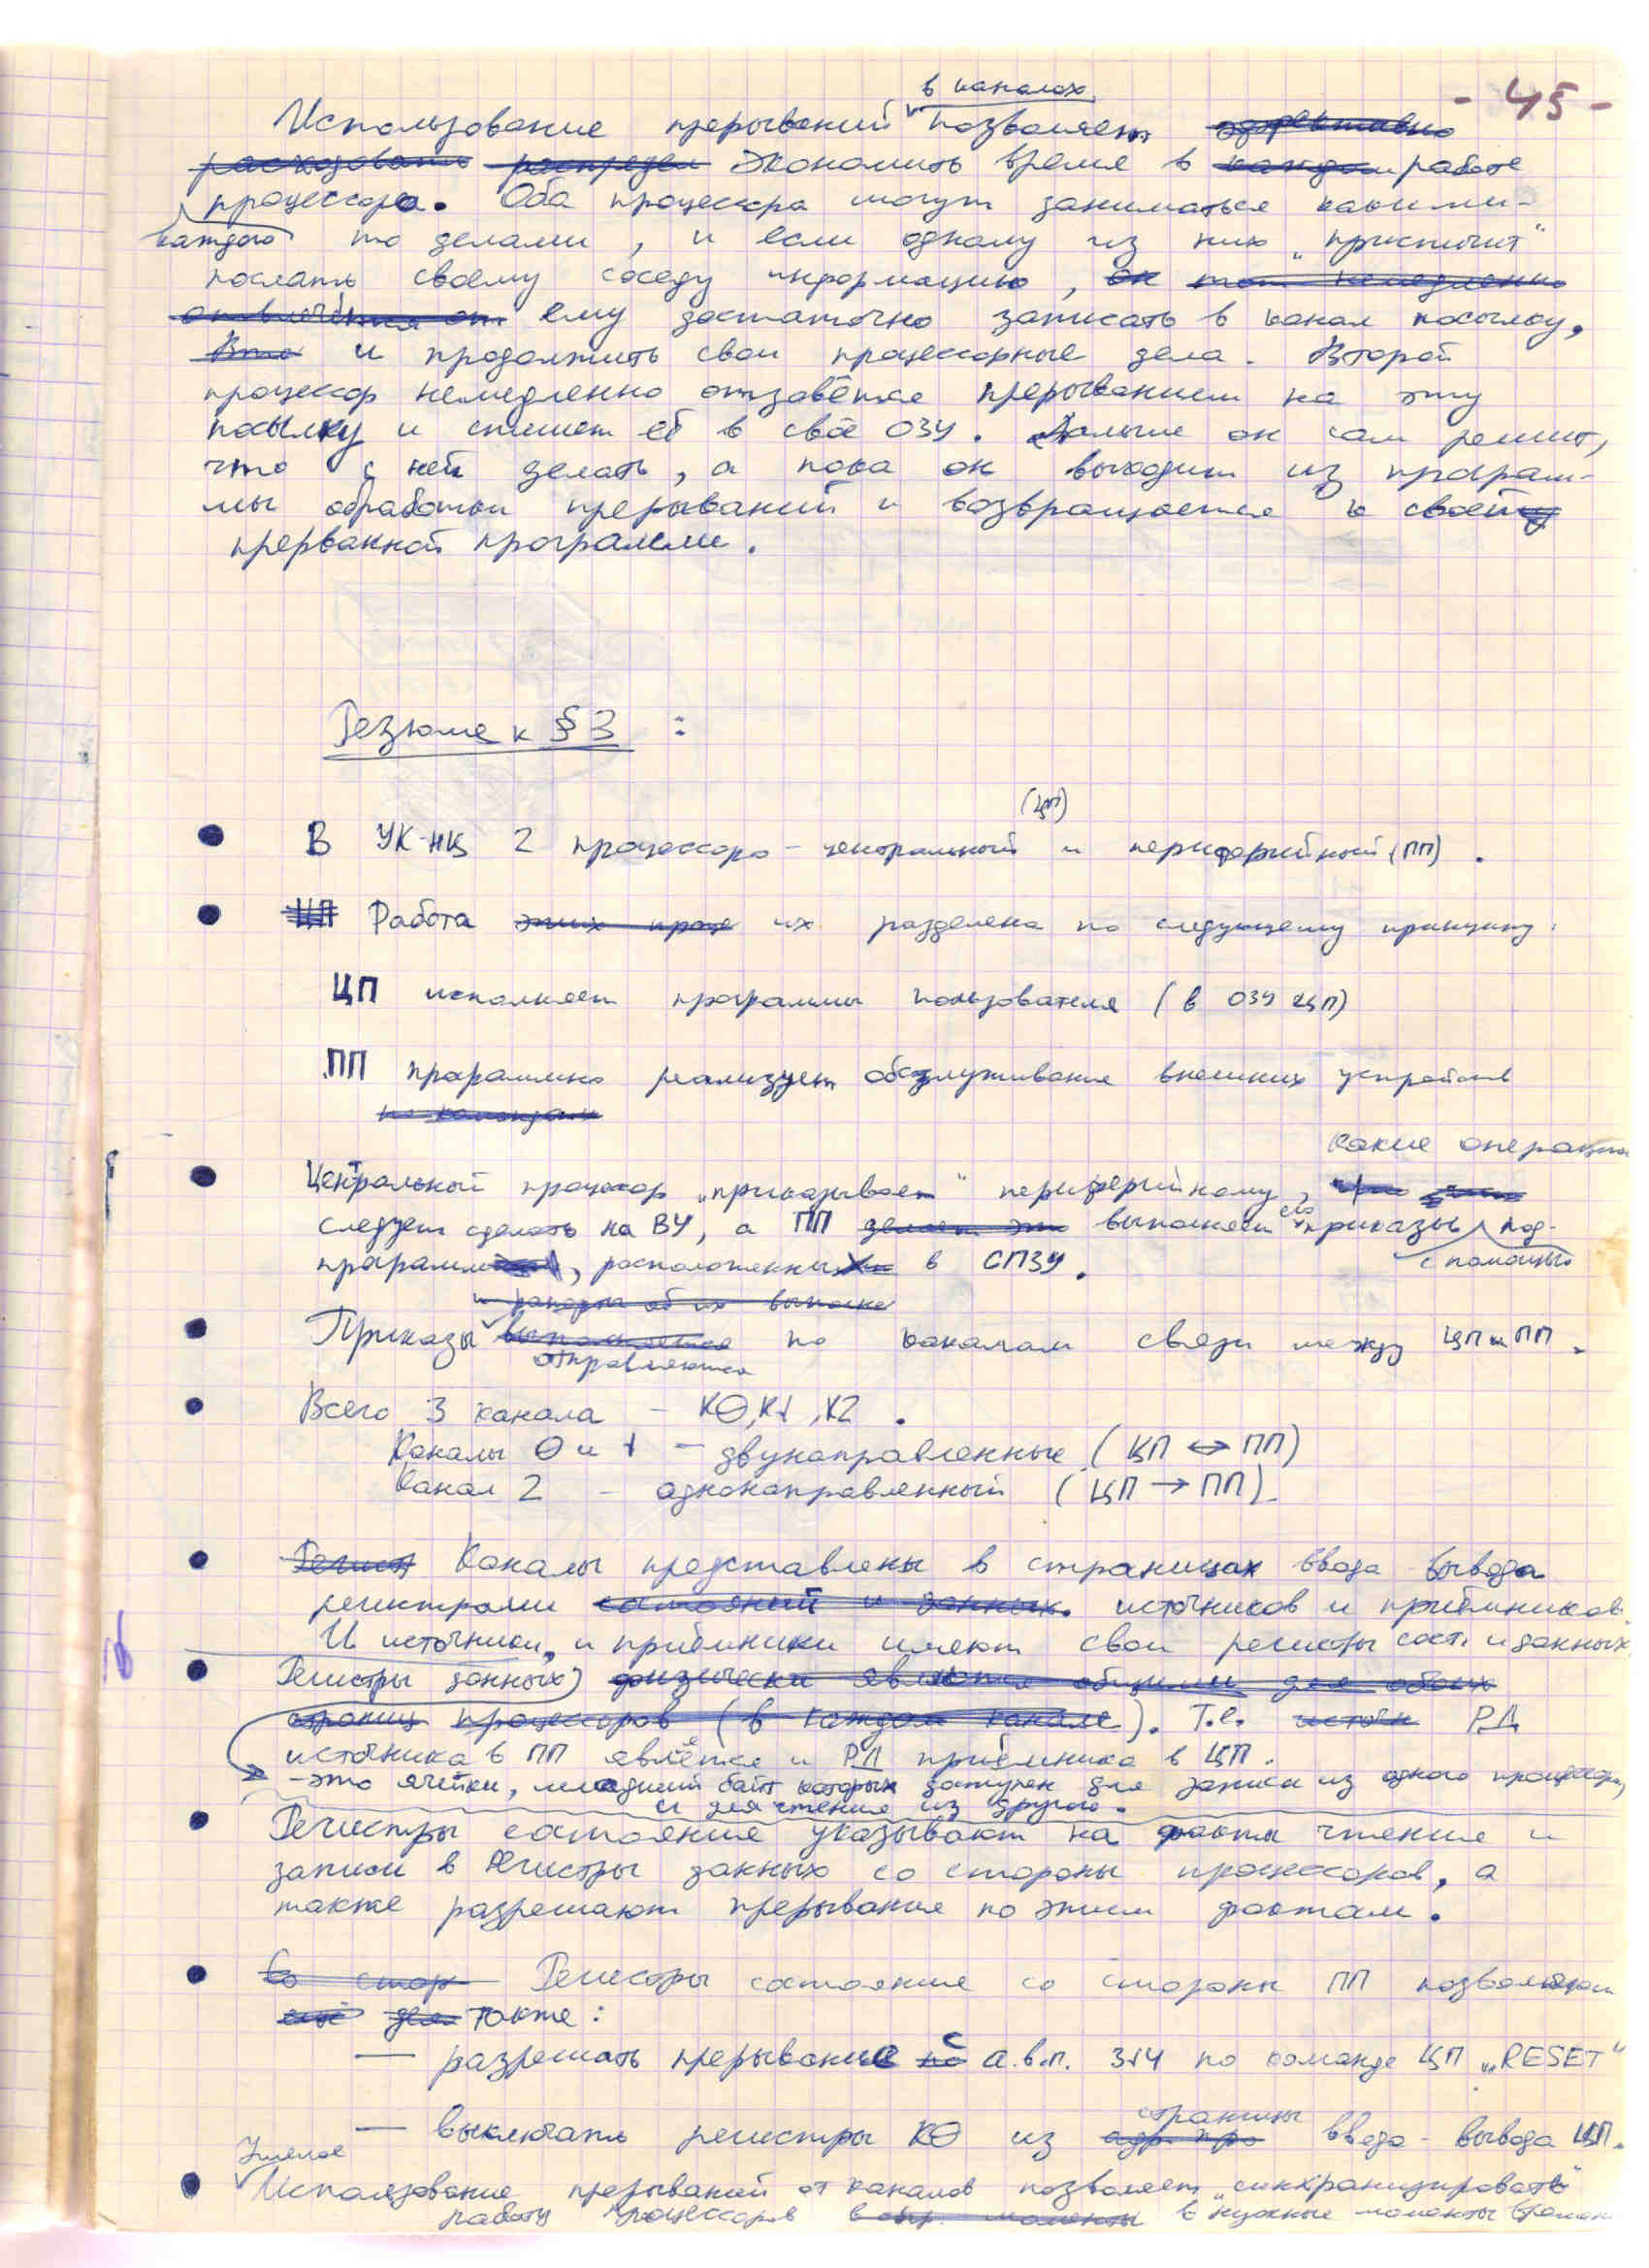 - 45 -
в каналах
Использование прерываний позволяет эффективно
расходовать распредел экономить время в каждом работе
процессора. Оба процессора могут заниматься какими-
каждого то делами, и если одному из них „приспичит"
послать своему соседу информацию, он тот немедленно
отвлечётся от ему достаточно записать в канал посылку,
и продолжить свои процессорные дела. Второй
процессор немедленно отзовётся прерыванием на эту
посылку и спишет её в своё ОЗУ. Дальше он сам решит,
что с ней делать, а пока он выходит из програм-
мы обработки прерываний и возвращается к своей
прерванной программе.
Резюме к § 3 :
(ЦП)
• В УК-НЦ 2 процессора - центральный и периферийный (ПП).
• ЦП Работа этих проце их разделена по следующему принципу:
ЦП исполняет программы пользователя (в ОЗУ ЦП)
ПП программно реализует обслуживание внешних устройств
по командам
какие операции
• Центральный процессор „приказывает" периферийному, что
следует сделать на ВУ, а ПП делает это выполняет его приказы под-
с помощью
программ, расположенных в СПЗУ.
и рапорты об их выполне
• Приказы выполняются по каналам связи между ЦП и ПП.
отправляются
• Всего 3 канала - К0, К1, К2.
Каналы 0 и 1 - двунаправленные (ЦП ↔ ПП)
Канал 2 - однонаправленный (ЦП → ПП).
• Регист Каналы представлены в страницах ввода-вывода
регистрами состояний и данных. источников и приёмников.
И источники, и приёмники имеют свои регистры сост. и данных.
• Регистры данных) физически являются общими для обоих
страниц процессоров (в каждом канале). Т.е. источн РД
источника в ПП является и РД приёмника в ЦП.
- это ячейки, младший байт которых доступен для записи из одного процессора,
и для чтения из другого.
• Регистры состояния указывают на факты чтения и
записи в Регистры данных со стороны процессоров, а
также разрешают прерывания по этим фактам.
• Со стор Регистры состояния со стороны ПП позволяют
ещё для также:
— разрешать прерывание по с а.в.п. 314 по команде ЦП „RESET"
страницы
— выключать регистры К0 из адр. про ввода-вывода ЦП.
Умелое
• Использование прерываний от каналов позволяет „синхронизировать"
работу процессоров в опр. моменты в нужные моменты времен